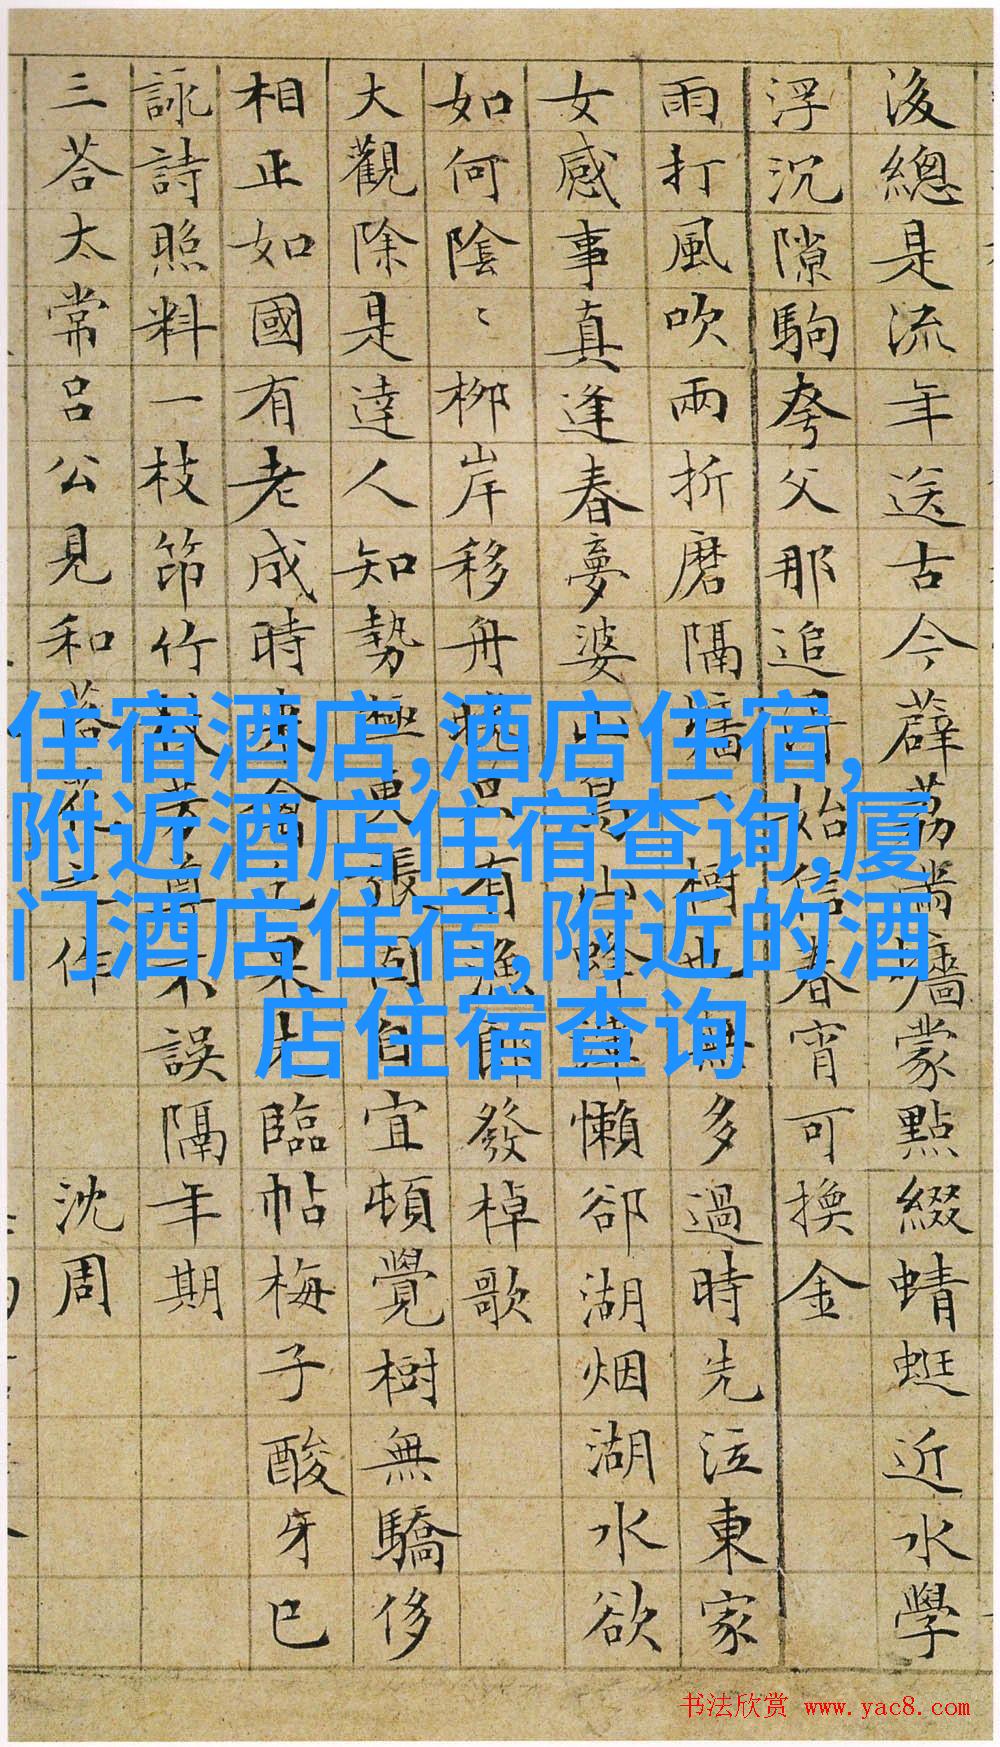 後總是流年送古今薜荔當墻蒙點綴蜻蜓近水學
浮沉隙駒夸父那追始信春宵可換金
雨打風吹兩折磨隔墻一樹也無多過時先泣東家
女感事真逢春夢婆山蜂懶卻湖烟湖水欲
如何陰〻柳岸移舟晚有漁郎發棹歌
大觀除是達人知勢極東張自宜頓覺樹無驕侈
相正如國有老成時未臨帖梅子酸牙已
詠詩照料一枝笻竹杖芳尊不誤隔年期
三荅太常呂公見和荅花之作 沈周
住宿酒店,酒店住宿,
附近酒店住宿查询,厦
门酒店住宿,附近的酒
店住宿查询
书法欣赏 www.yac8.com